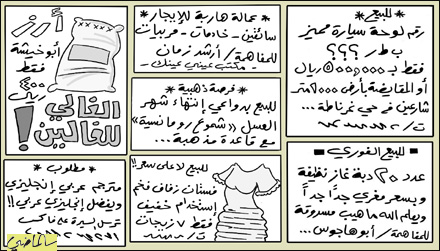 * للبيع *
رقم لوحة سيارة مميز
ب ط ر ؟؟؟
فقط بـ ٥٠٠,٠٠٠ ريال
أو المقايضة بأرض ١٠٠٠متر
شارعين في حي غرناطة..
ت/
** للبيع الفوري **
عدد ٢٠ دبة غاز نظيفة
وبسعر مغري جداً جداً
ويعلم الله ما هيب مسروقة
للمفاهمة/ أبو هاجوس..
* عمالة هاربة للإيجار *
سائقين - خادمات - مربيات
للمفاهمة/ أرشد زمان
- مكتب عيني عينك -
* فرصة ذهبية *
للبيع بدواعي إنتهاء شهر
العسل «شموع رومانسية»
مع قاعدة مذهبة..
للبيع لأعلى سعر!!
فستان زفاف فخم
إستخدام خفيف
فقط ٧ زيجات
ت/
أرز
أبو خيشة
فقط
ريال
الغالي
للغالين!
* مطلوب *
مترجم عربي إنجليزي
ويفضل إنجليزي عربي!!
ترسل السيرة على فاكس